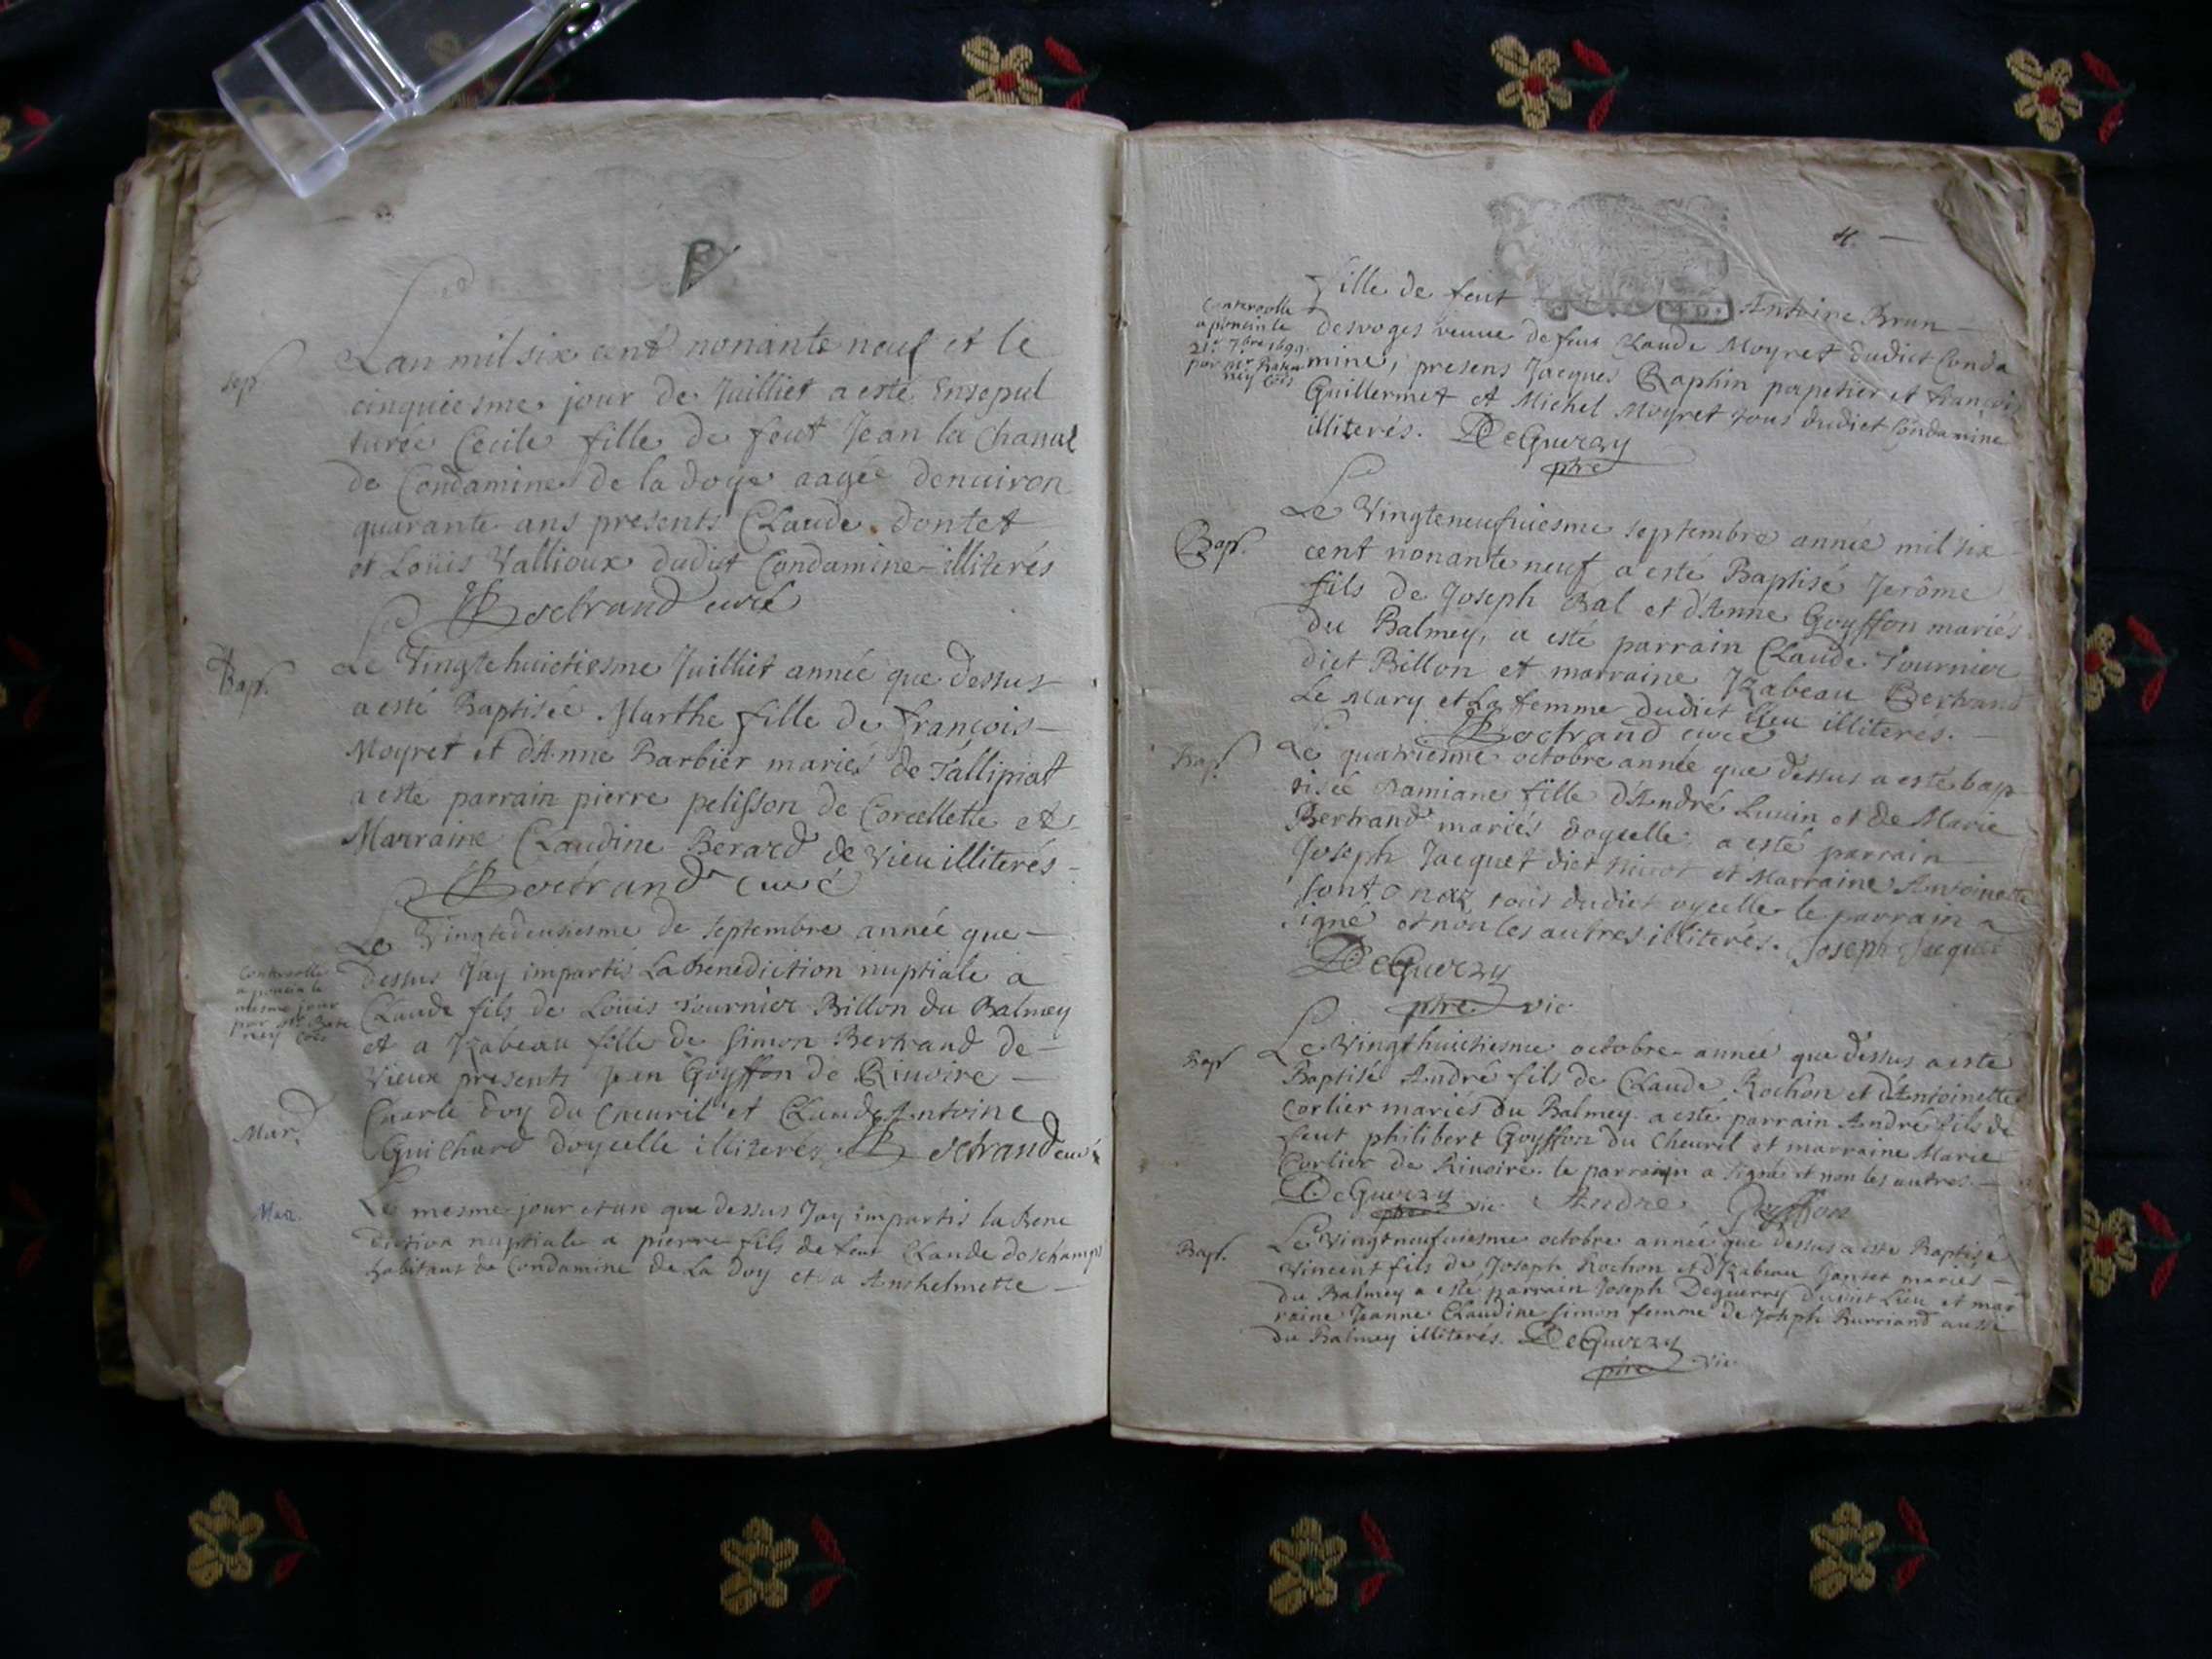 sep.
Lan mil six cent nonante neuf et le
cinquiesme jour de Juilliet a esté Ensepul
turée Cecile fille de feut Jean la Chanal
de Condamine de la doye aagée denuiron
quarante ans presents Claude dontet
et Loüis Vallioux dudict Condamine illiterés
Bertrand curé
Bap.
Le Vingtehuictiesme Juilliet année que dessus
a esté Baptisée Marthe fille de françois
Moyret et d'Anne Barbier mariés de Tallipiat
a esté parrain pierre pelisson de Corcellette et
Marraine Claudine Berard de Vieu illiterés
Bertrand curé
Controolle
a poncin le
mesme jour
par
ney
Mar.
Le Vingtedeusiesme de septembre année que
dessus Jay impartis La benediction nuptiale a
Claude fils de Loüis Tournier Billon du Balmey
et a Yzabeau fille de Simon Bertrand de
Vieux presents Jean Goyffon de Riuoire
Charle doy du Cheuril et Claude Antoine
Guichard doycelle illiterés Bertrand curé
Mar.
Le mesme jour et an que dessus Jay impartis la Bene
diction nuptiale a pierre fils de feut Claude deschamps
habitant de Condamine de La doy et a Anthelmette
fille de feut Antoine Brun
Controolle
a poncin le
21e 7bre 1699
par
ney
desvoges veuue de feus Claude Moyret dudict Conda
mine, presens Jacques Raphin papetier et françois
Guillermet et Michel Moyret tous dudict Condamine
illiterés. DeGuerry
ptre
Bap.
Le Vingteneufuiesme septembre année mil six
cent nonante neuf a esté Baptisé Jerôme
fils de Joseph Bal et d'Anne Goyffon mariés
du Balmey, a esté parrain Claude Tournier
dict Billon et marraine Yzabeau Bertrand
Le Mary et La femme dudict Lieu illiterés.
Bertrand curé
Bap.
Le quatriesme octobre année que dessus a esté bap
tisée Damiane fille d'André Luuin et de Marie
Bertrand mariés doycelle a esté parrain
Joseph Jacquet dict et Marraine Antoinette
tous dudict oycelle le parrain a
signé et non les autres illiterés. Joseph Jacquet
DeGuerry
ptre vic
Bap.
Le Vingthuictiesme octobre année que dessus a esté
Baptisé André fils de Claude Rochon et d'Antoinette
Corlier mariés du Balmey a esté parrain André fils de
feut philibert Goyffon du Cheuril et marraine Marie
Corlier de Riuoire. le parrain a signé et non les autres.
DeGuerry ptre vic André Goyffon
Bap.
Le Vingtneufuiesme octobre année que dessus a esté Baptisé
Vincent fils de Joseph Rochon et d'Yzabeau mariés
du Balmey a esté parrain Joseph Deguerry dudict Lieu et mar
raine Jeanne Claudine Simon femme de Joseph aussi
du Balmey illiterés. DeGuerry
ptre vic